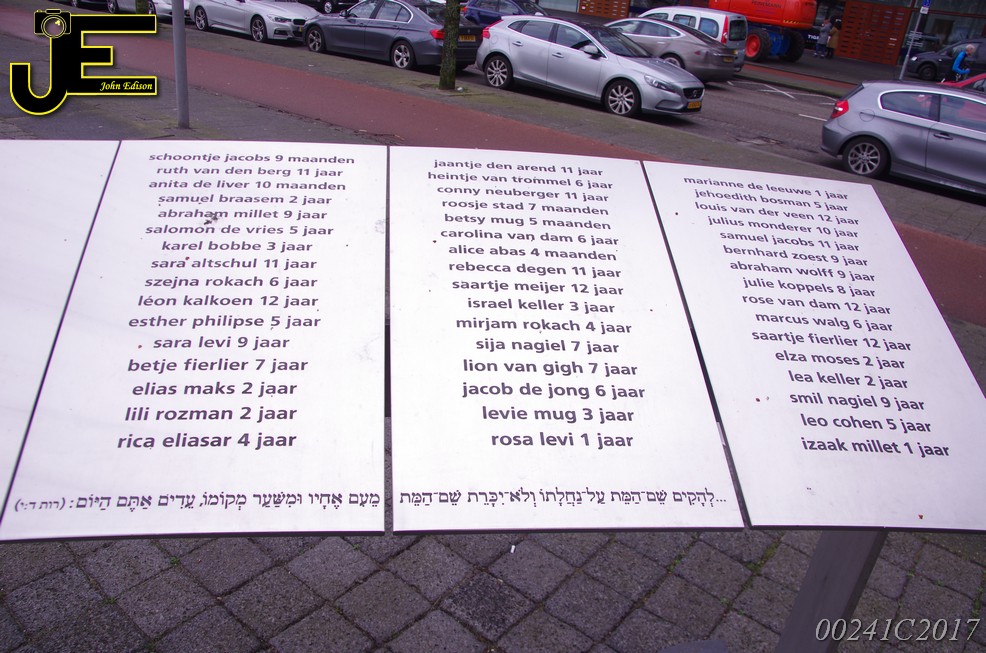 JE
John Edison
schoontje jacobs 9 maanden
ruth van den berg 11 jaar
anita de liver 10 maanden
samuel braasem 2 jaar
abraham millet 9 jaar
salomon de vries 5 jaar
karel bobbe 3 jaar
sara altschul 11 jaar
szejna rokach 6 jaar
léon kalkoen 12 jaar
esther philipse 5 jaar
sara levi 9 jaar
betje fierlier 7 jaar
elias maks 2 jaar
lili rozman 2 jaar
rica eliasar 4 jaar
jaantje den arend 11 jaar
heintje van trommel 6 jaar
conny neuberger 11 jaar
roosje stad 7 maanden
betsy mug 5 maanden
carolina van dam 6 jaar
alice abas 4 maanden
rebecca degen 11 jaar
saartje meijer 12 jaar
israel keller 3 jaar
mirjam rokach 4 jaar
sija nagiel 7 jaar
lion van gigh 7 jaar
jacob de jong 6 jaar
levie mug 3 jaar
rosa levi 1 jaar
marianne de leeuwe 1 jaar
jehoedith bosman 5 jaar
louis van der veen 12 jaar
julius monderer 10 jaar
samuel jacobs 11 jaar
bernhard zoest 9 jaar
abraham wolff 9 jaar
julie koppels 8 jaar
rose van dam 12 jaar
marcus walg 6 jaar
saartje fierlier 12 jaar
elza moses 2 jaar
lea keller 2 jaar
smil nagiel 9 jaar
leo cohen 5 jaar
izaak millet 1 jaar
...לְהָקִים שֵׁם־הַמֵּת עַל־נַחֲלָתוֹ וְלֹא־יִכָּרֵת שֵׁם־הַמֵּת מֵעִם אֶחָיו וּמִשַּׁעַר מְקוֹמוֹ, עֵדִים אַתֶּם הַיּוֹם: (רות ד:י)
00241C2017